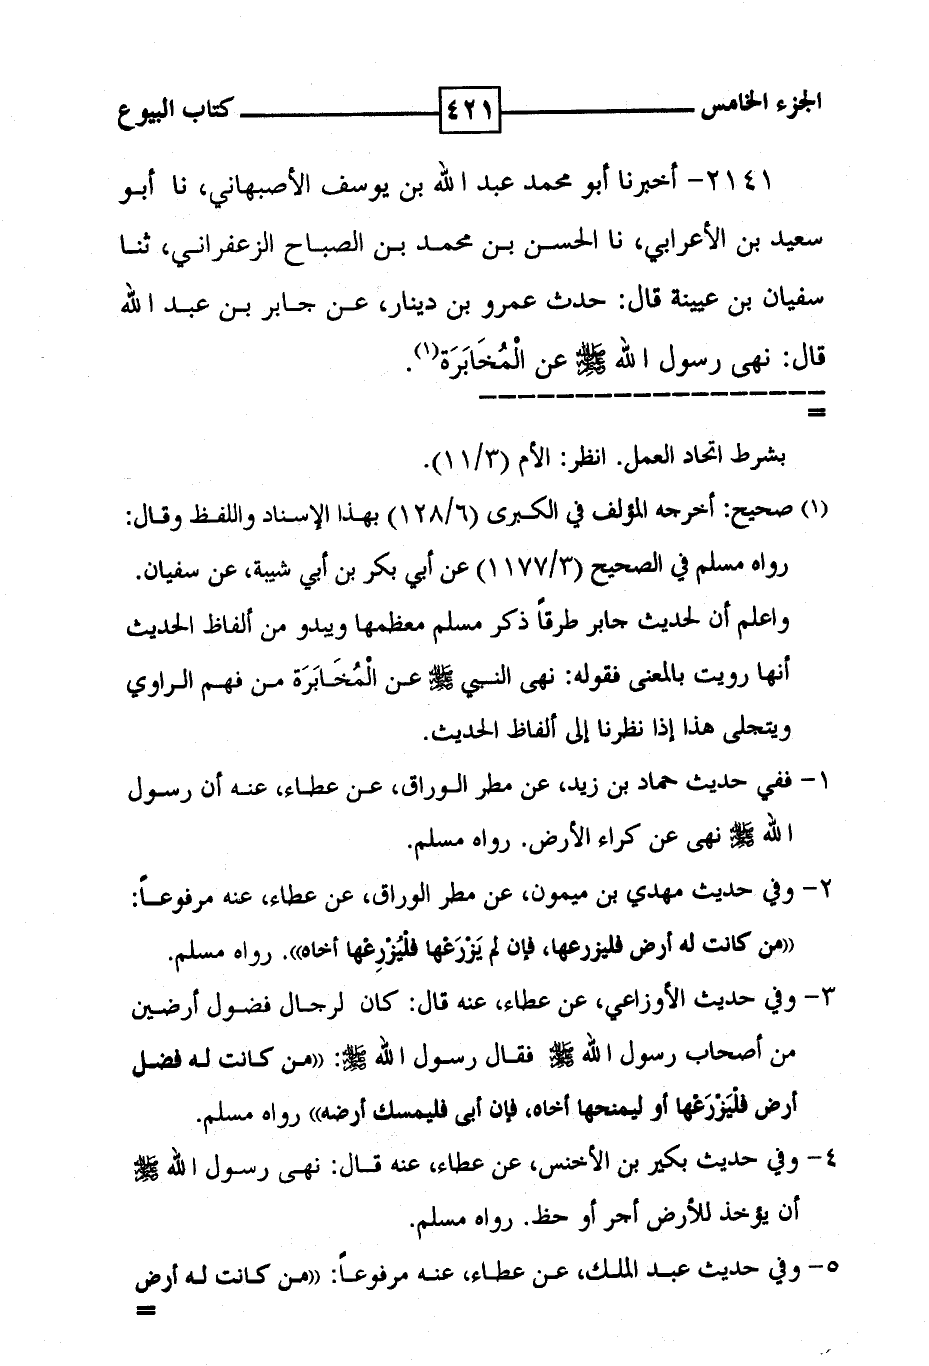 الجزء الخامس ٤٢١ كتاب البيوع
٢١٤١- أخبرنا أبو محمد عبد الله بن يوسف الأصبهاني، نا أبو
سعيد بن الأعرابي، نا الحسن بن محمد بن الصباح الزعفراني، ثنا
سفيان بن عيينة قال: حدث عمرو بن دينار، عن جابر بن عبد الله
قال: نهى رسول الله ﷺ عن الْمُخَابَرَة(١).
=
بشرط اتحاد العمل. انظر: الأم (١١/٣).
(١) صحيح: أخرجه المؤلف في الكبرى (١٢٨/٦) بهذا الإسناد واللفظ وقال:
رواه مسلم في الصحيح (١١٧٧/٣) عن أبي بكر بن أبي شيبة، عن سفيان.
واعلم أن لحديث جابر طرقاً ذكر مسلم معظمها ويبدو من ألفاظ الحديث
أنها رويت بالمعنى فقوله: نهى النبي ﷺ عن الْمُخَابَرَة من فهم الراوي
ويتجلى هذا إذا نظرنا إلى ألفاظ الحديث.
١- ففي حديث حماد بن زيد، عن مطر الوراق، عن عطاء، عنه أن رسول
الله ﷺ نهى عن كراء الأرض. رواه مسلم.
٢- وفي حديث مهدي بن ميمون، عن مطر الوراق، عن عطاء، عنه مرفوعاً:
((من كانت له أرض فليزرعها، فإن لم يَزْرَعْها فلْيُزْرِعْها أخاه)). رواه مسلم.
٣- وفي حديث الأوزاعي، عن عطاء، عنه قال: كان لرجال فضول أرضين
من أصحاب رسول الله ﷺ فقال رسول الله ﷺ: ((من كانت له فضل
أرض فلْيَزْرَعْها أو ليمنحها أخاه، فإن أبى فليمسك أرضه)) رواه مسلم.
٤- وفي حديث بكير بن الأخنس، عن عطاء، عنه قال: نهى رسول الله ﷺ
أن يؤخذ للأرض أجر أو حظ. رواه مسلم.
٥- وفي حديث عبد الملك، عن عطاء، عنه مرفوعاً: ((من كانت له أرض
=